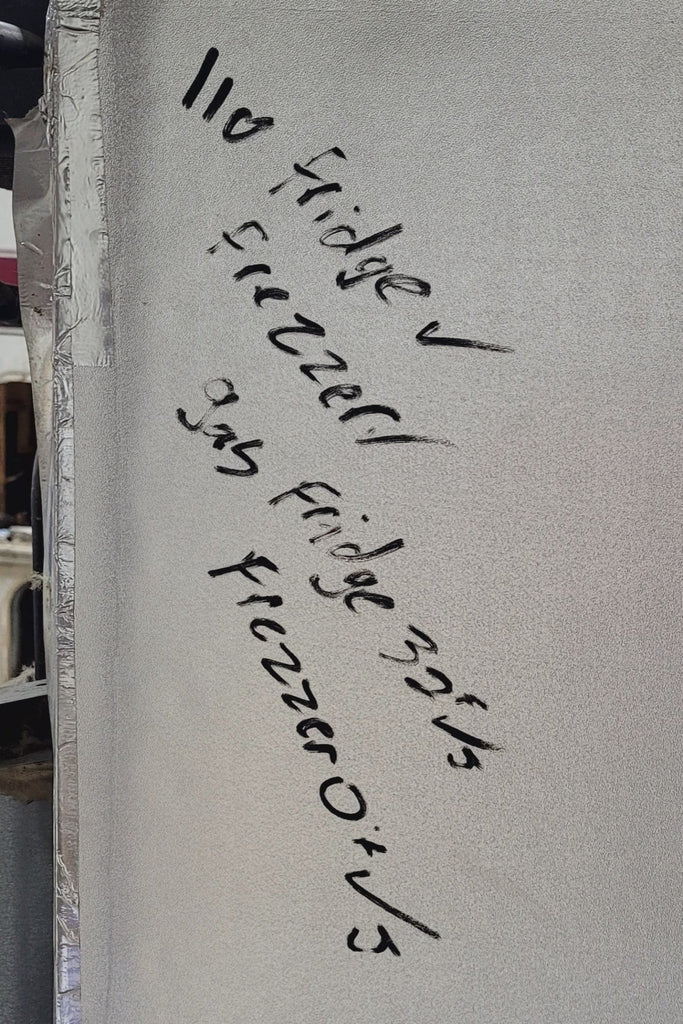 110 Fridge ✓
Frezzer ✓
gas Fridge 32° ✓
Frezzer 0° ✓